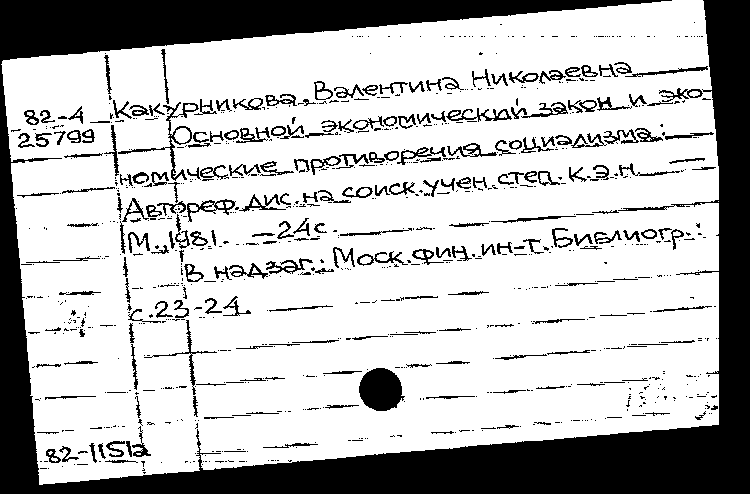 82-4 Какурникова, Валентина Николаевна
25799 Основной экономический закон и эко-
номические противоречия социализма:
Автореф. дис. на соиск. учен. степ. к.э.н.
М., 1981. — 24с.
В надзаг.: Моск. фин. ин-т. Библиогр.:
с. 23-24.
82-11512